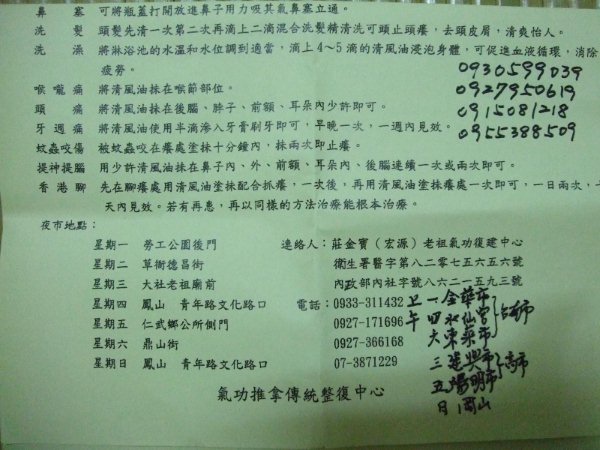 鼻　塞　可將瓶蓋打開放進鼻子用力吸其氣鼻塞立通。
洗　髮　頭髮先清一次第二次再滴上二滴混合洗髮精清洗可頭止頭癢，去頭皮屑，清爽怡人。
洗　澡　將淋浴池的水溫和水位調到適當，滴上4～5滴的清風油浸泡身體，可促進血液循環，消除
疲勞。
0930599039
喉嚨痛　將清風油抹在喉節部位。
0927950619
頭　痛　將清風油抹在後腦、脖子、前額、耳朵內少許即可。
0915081218
牙週痛　將清風油使用半滴滲入牙膏刷牙即可，早晚一次，一週內見效。
0955388509
蚊蟲咬傷　被蚊蟲咬在癢處塗抹十分鐘內，抹兩次即止癢。
提神提腦　用少許清風油抹在鼻子內、外、前額、耳朵內、後腦連續一次或兩次即可。
香港腳　先在腳癢處用清風油塗抹配合抓癢，一次後，再用清風油塗抹癢處一次即可，一日兩次，
天內見效。若有再患，再以同樣的方法治療能根本治療。
夜市地點：
星期一　勞工公園後門　連絡人：莊金寶（宏源）老祖氣功復建中心
星期二　草衙德昌街　衛生署醫字第八二０七五六五六號
星期三　大社老祖廟前　內政部內社字號八六二一五九三號
星期四　鳳山　青年路文化路口　電話：0933-311432
星期五　仁武鄉公所側門　0927-171696
星期六　鼎山街　0927-366168
星期日　鳳山　青年路文化路口　07-3871229
上午
一金華市
四水仙宮
六東菜市
三建興市
五陽明市
高市
日岡山
氣功推拿傳統整復中心